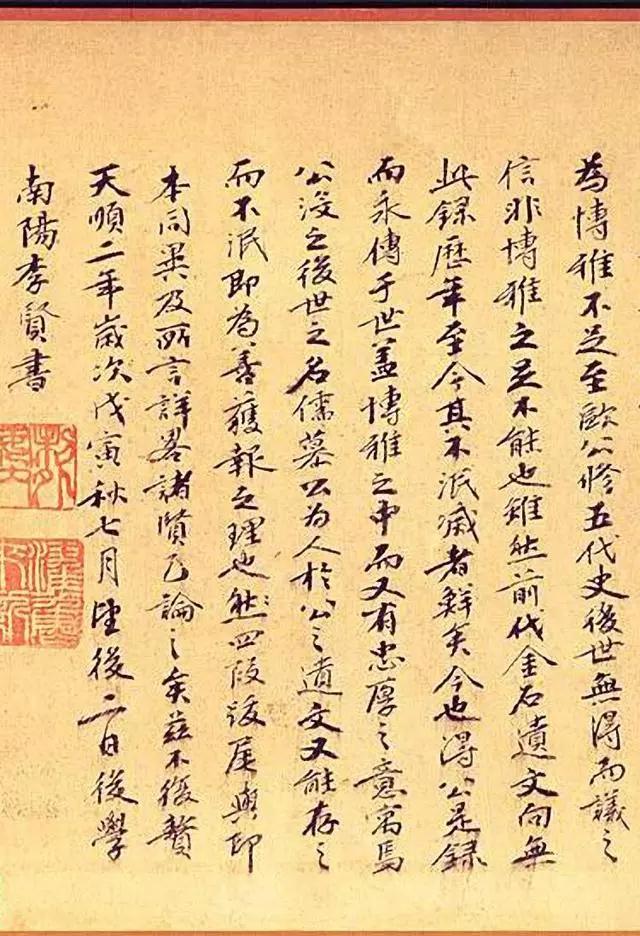 為博雅不足至歐公修五代史後世無得而議之
信非博雅之足不能也雖然前代金石遺文向無
此錄歷年至今其不泯滅者鮮矣今也得公是錄
而永傳于世蓋博雅之中而又有忠厚之意寓焉
公沒之後世之名儒慕公為人於公之遺文又能存之
而不泯即為善獲報之理也然四段跋尾與印
本同異及所言詳畧諸賢已論之矣茲不復贅
天順二年歲次戊寅秋七月望後二日後學
南陽李賢書